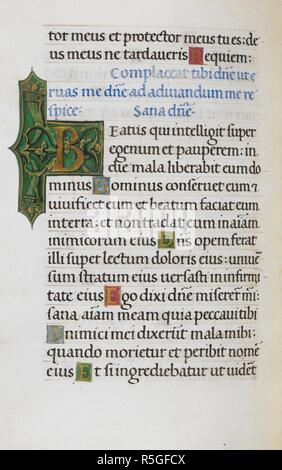 tor meus et protector meus tu es: de
us meus ne tardaueris Requiem:
Complaceat tibi dñe ut e
ruas me dñe ad adiuuandum me re
spice: Sana dñe.
Beatus qui intelligit super
egenum et pauperem: in
die mala liberabit eum do
minus Dominus conseruet eum &
uiuificet eum et beatum faciat eum
in terra: et non tradat eum in aiam
inimicorum eius Dñs opem ferat
illi super lectum doloris eius: uniuer
sum stratum eius uersasti in infirmi
tate eius Ego dixi dñe miserere mei:
sana aiam meam quia peccaui tibi
Inimici mei dixerunt mala mihi:
quando morietur et peribit nomē
eius Et si ingrediebatur ut uidēt
alamy
R5GFCX